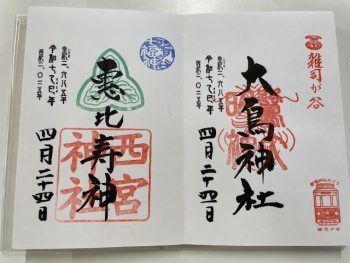 雑司が谷
大鳥神社
皇紀二、六八五年
令和七乙巳年
西暦二、〇二五年
四月二十四日
雑司が谷
恵比寿神
西宮神社
皇紀二、六八五年
令和七乙巳年
西暦二、〇二五年
四月二十四日